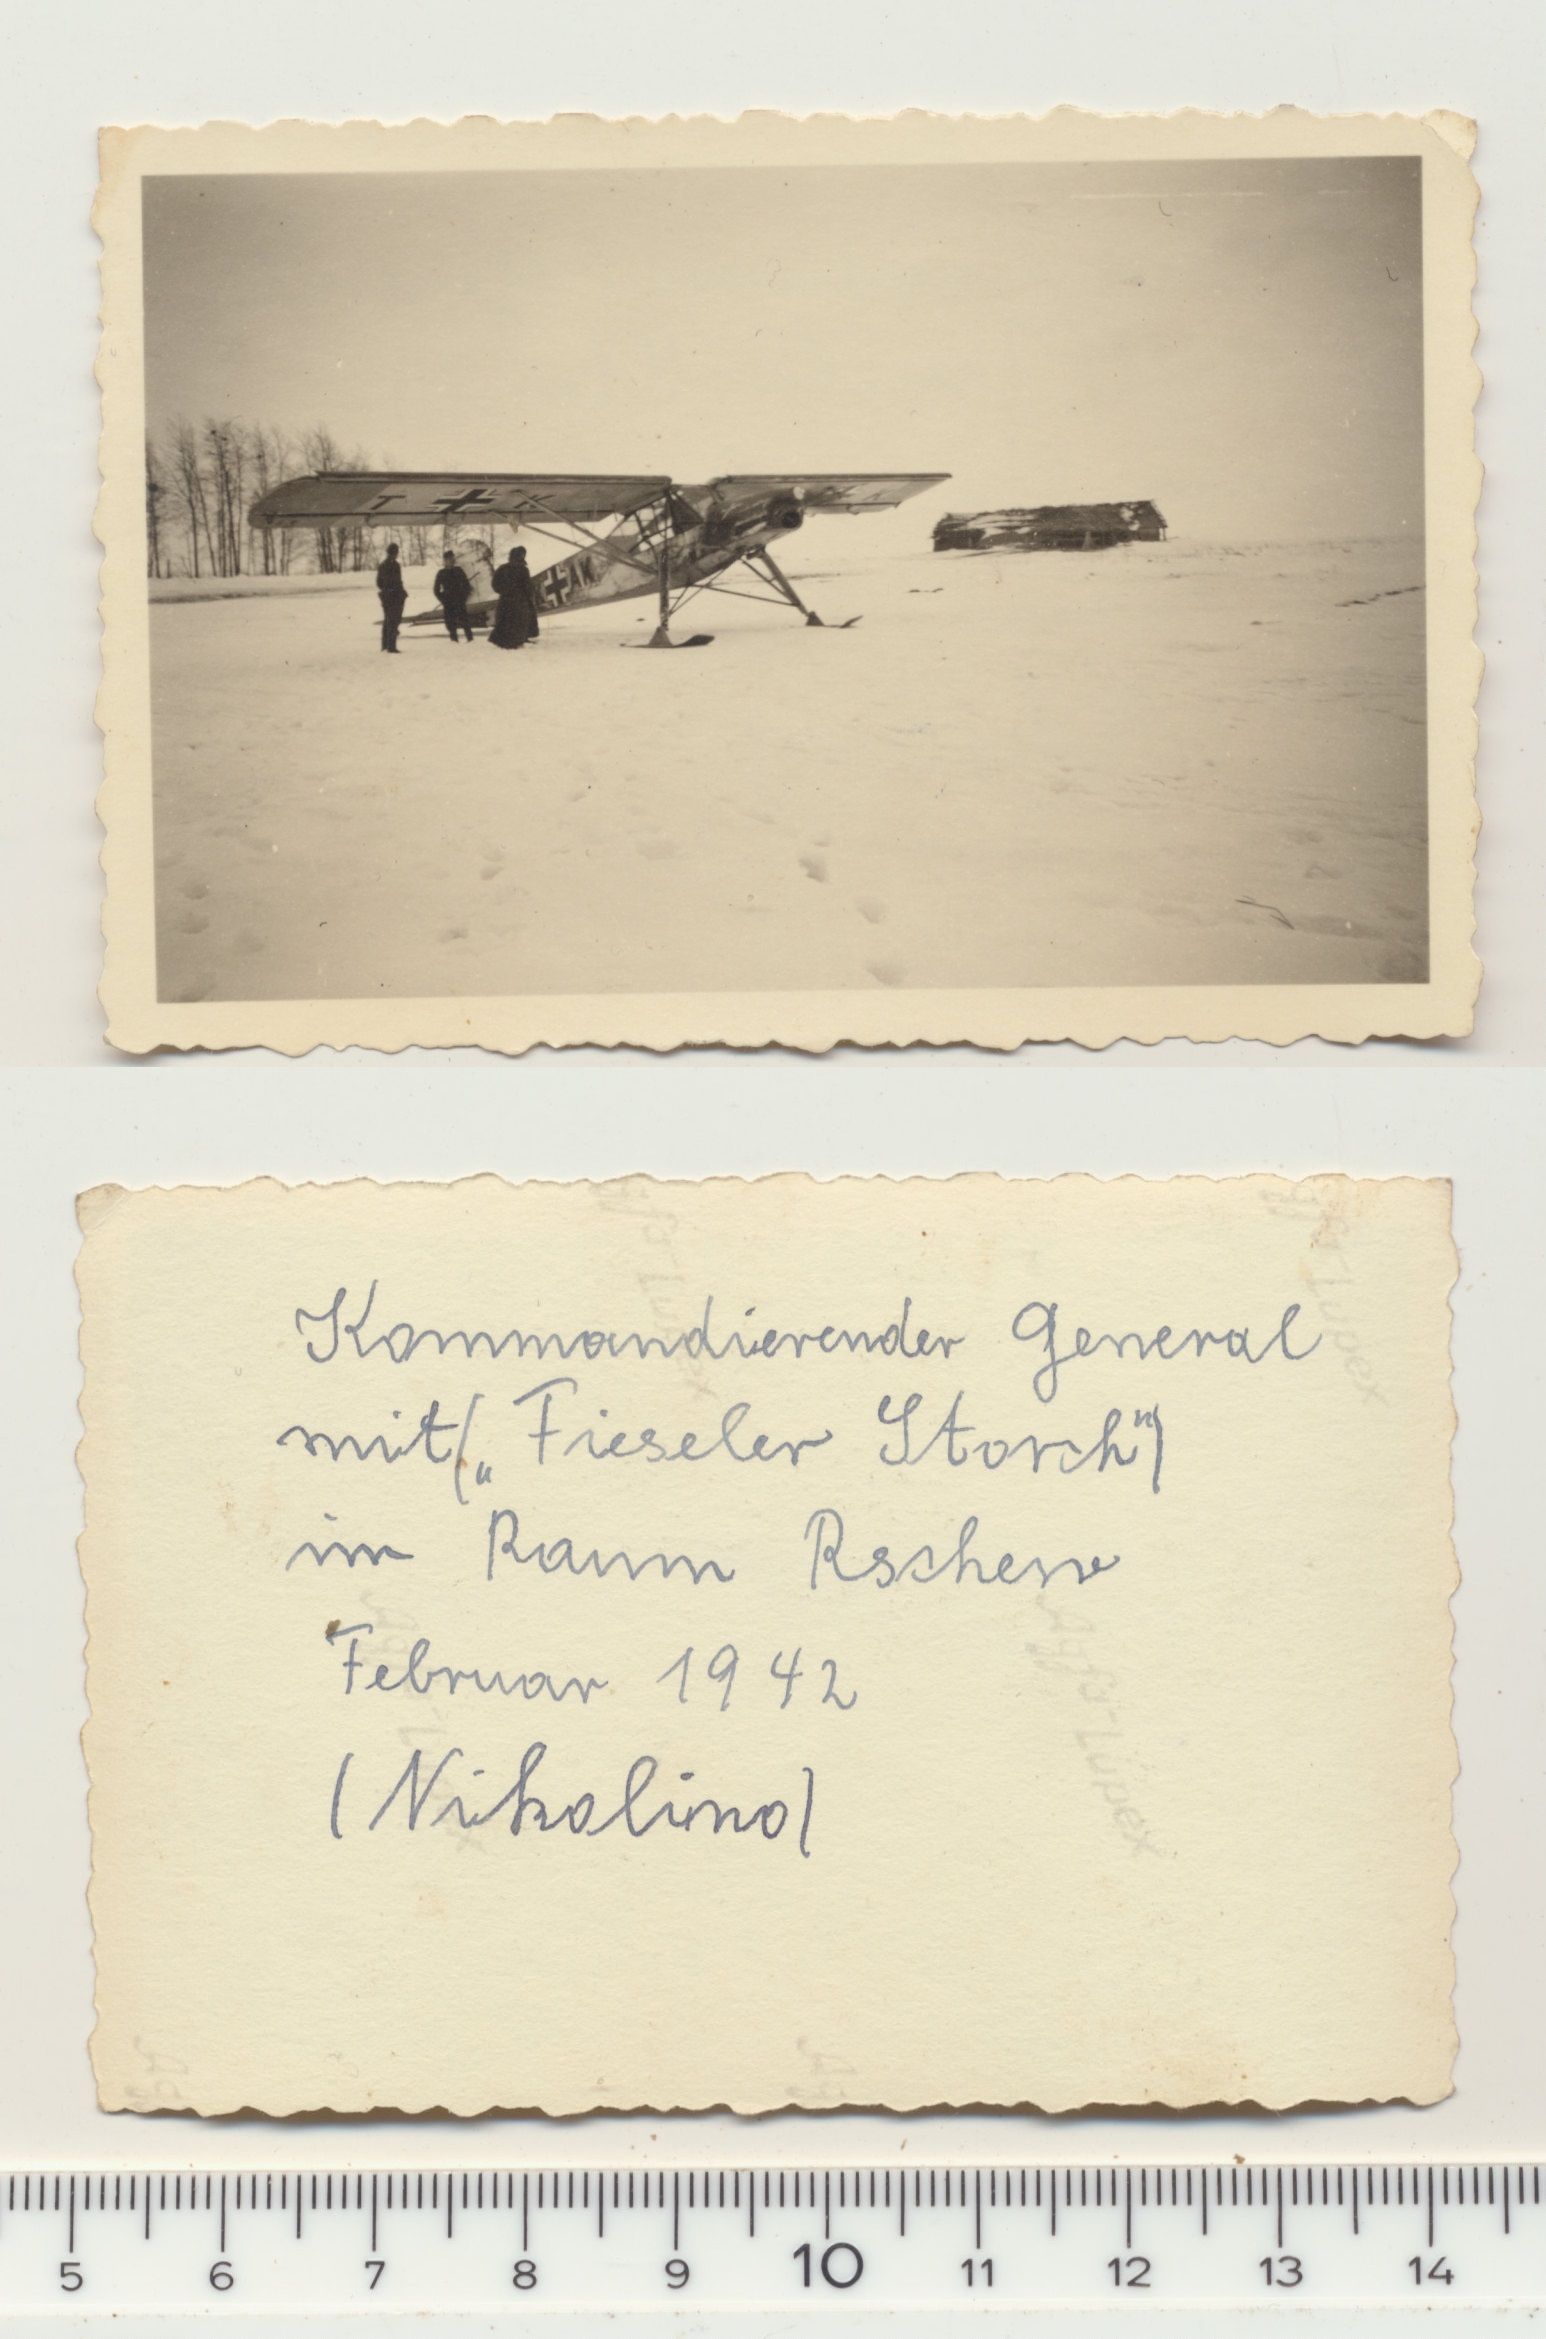 T K
K
AK
Kommandierender General
mit („Fieseler Storch")
im Raum Rschew
Februar 1942
(Nikolino)
Agfa-Lupex
Agfa-Lupex
Agfa-Lupex
Agfa-Lupex
5 6 7 8 9 10 11 12 13 14